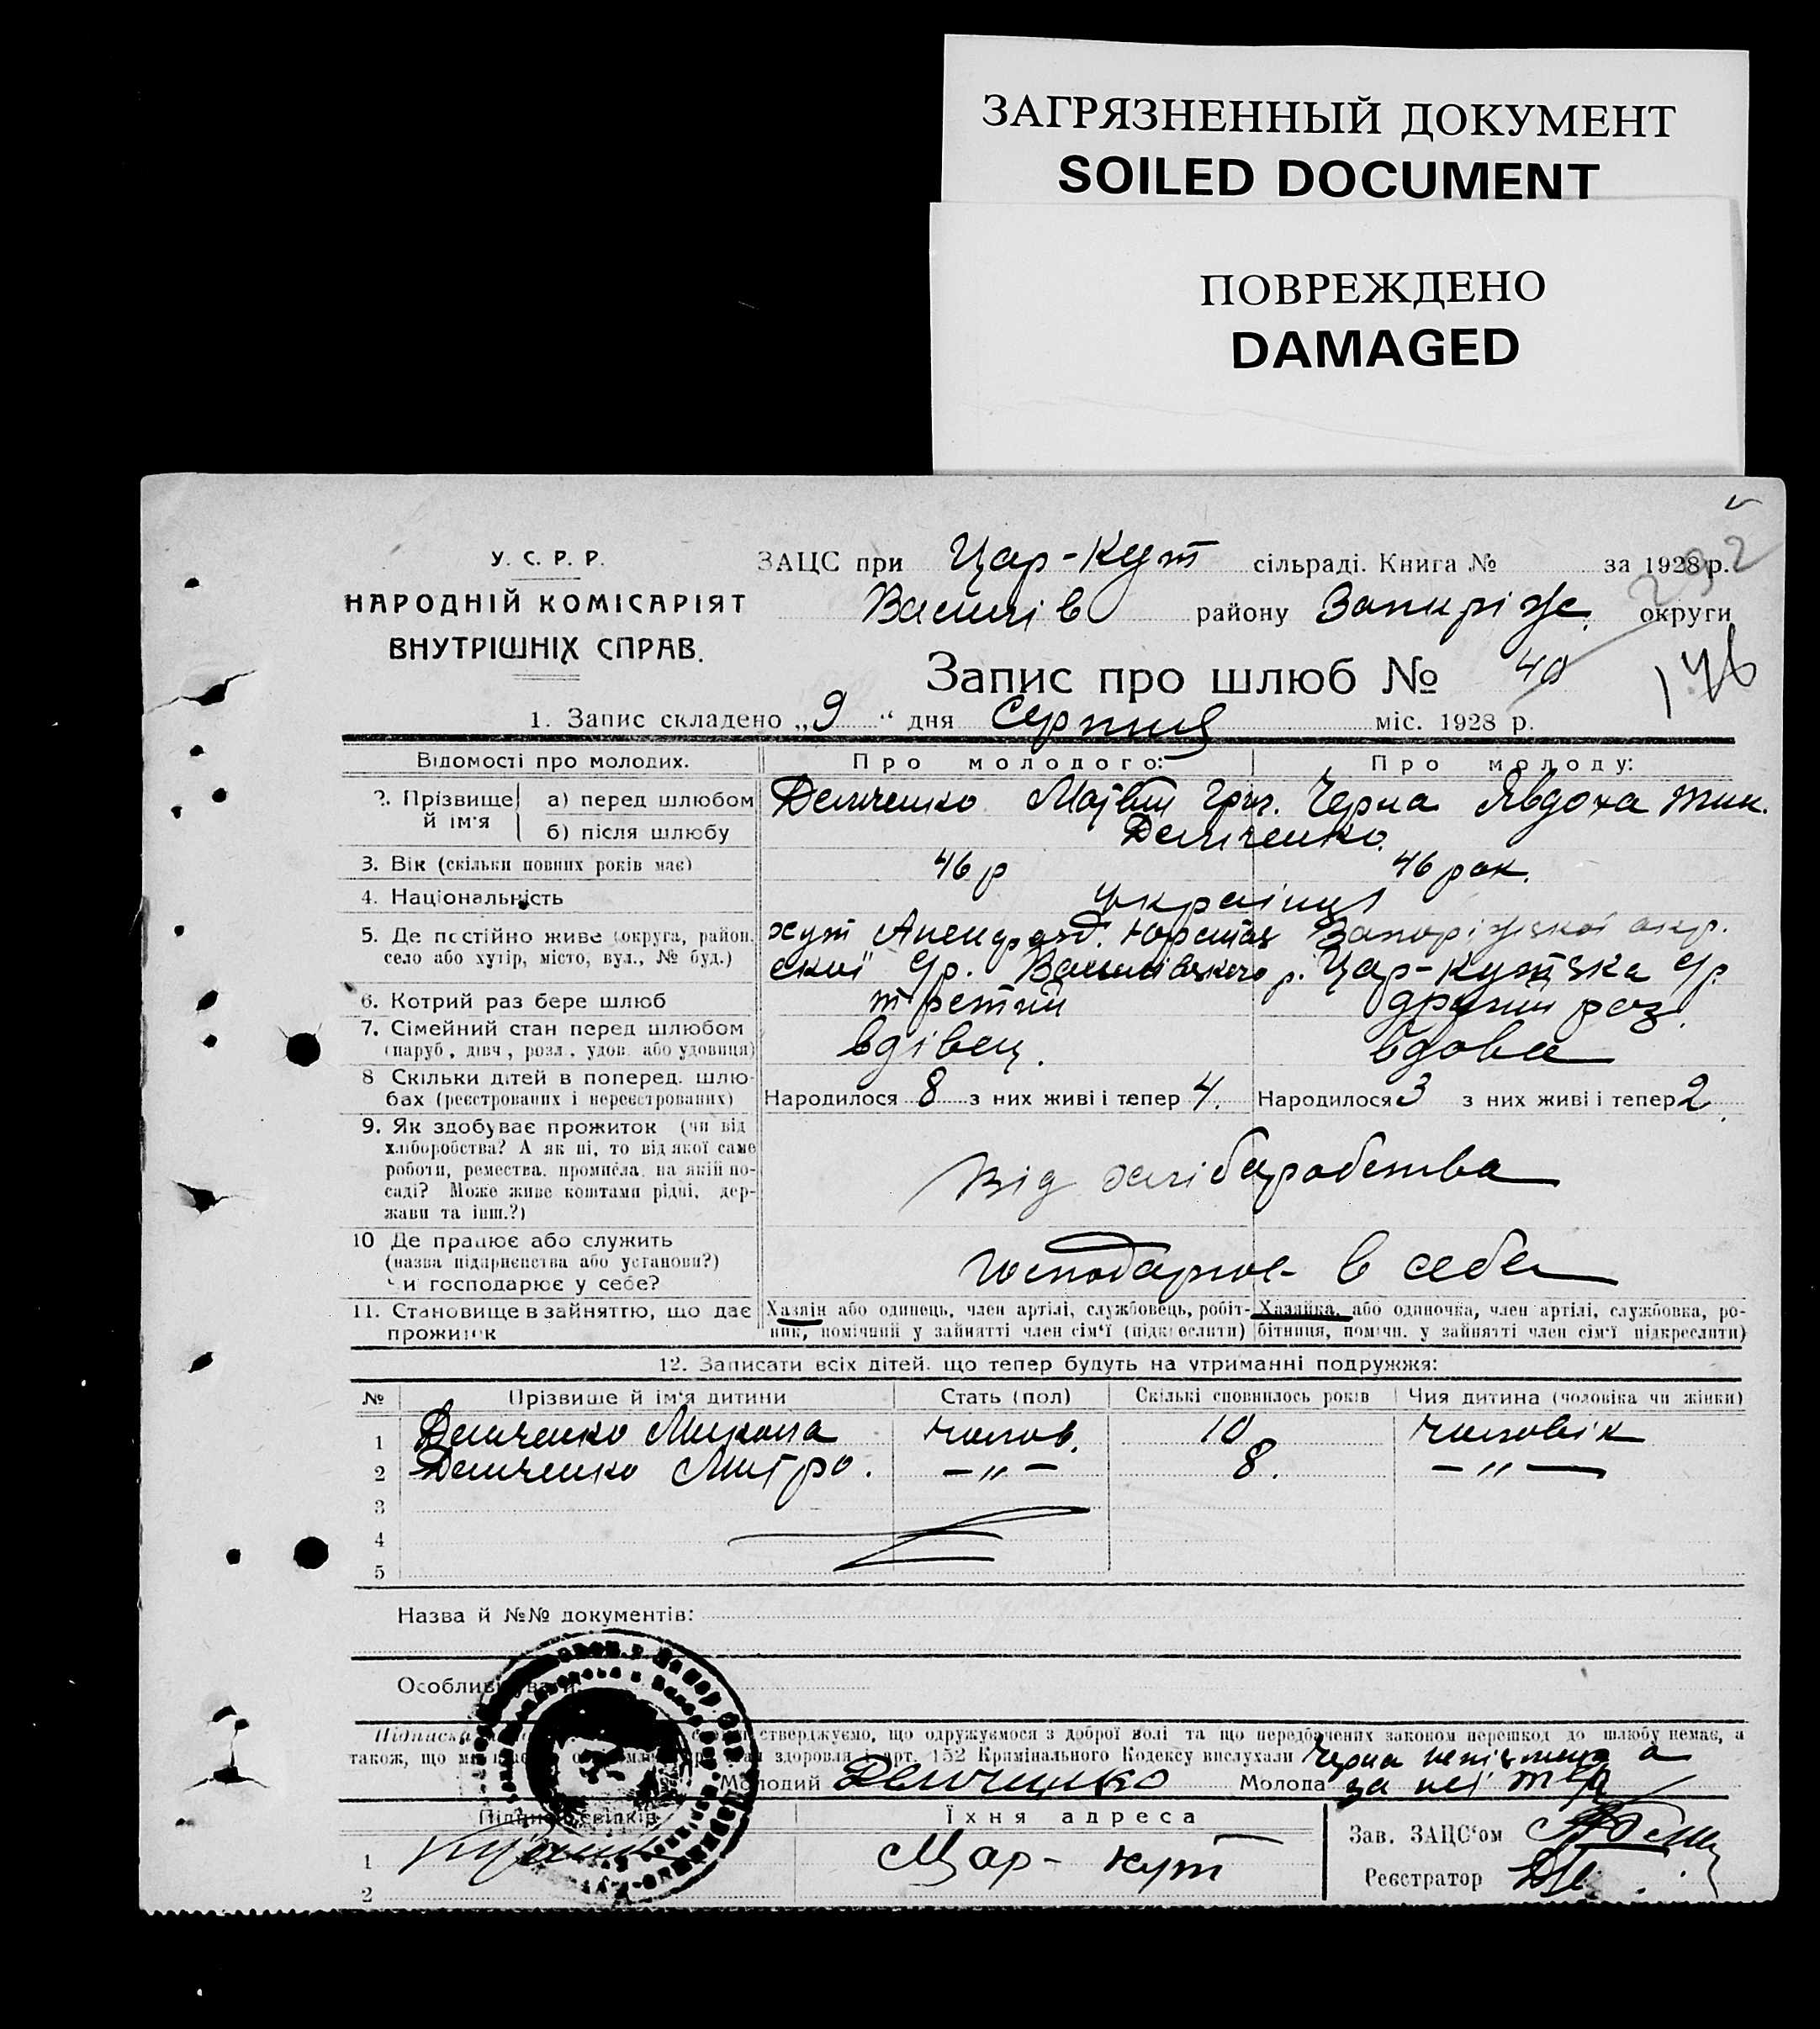 ЗАГРЯЗНЕННЫЙ ДОКУМЕНТ
SOILED DOCUMENT
ПОВРЕЖДЕНО
DAMAGED
У. С. Р. Р.
НАРОДНІЙ КОМІСАРІЯТ
ВНУТРІШНІХ СПРАВ.
ЗАЦС при Цар-Кут сільраді. Книга № за 1928 р.
232
Василів району Запоріж. округи
Запис про шлюб № 40
176
1. Запис складено „9" дня Серпня міс. 1928 р.
Відомості про молодих. Про молодого: Про молоду:
2. Прізвище й ім'я а) перед шлюбом Демченко Матвій Григ. Черна Явдоха Тим.
б) після шлюбу Демченко.
3. Вік (скільки повних років має) 46 р 46 рок.
4. Національність українці
5. Де постійно живе (округа, район, хут Александ. Запоріжської окр.
село або хутір, місто, вул., № буд.) ської с/р. Василівського р. Цар-кутська с/р
6. Котрий раз бере шлюб третий другий раз.
7. Сімейний стан перед шлюбом вдівец. вдова
(паруб., дівч., розл., удов. або удовиця)
8 Скільки дітей в поперед. шлюбах (реєстрованих і нереєстрованих) Народилося 8 з них живі і тепер 4. Народилося 3 з них живі і тепер 2.
9. Як здобуває прожиток (чи від
хліборобства? А як ні, то від якої саме
роботи, ремества, промисла, на якій по-
саді? Може живе коштами рідні, дер-
жави та інш.?)
Від хліборобства
10 Де працює або служить
(назва підприємства або установи?)
чи господарює у себе?
господарює в себе
11. Становище в зайняттю, що дає Хазяїн або одинець, член артілі, службовець, робіт- Хазяйка, або одиночка, член артілі, службовка, ро-
прожиток ник, помічний у зайнятті член сім'ї (підкреслити) бітниця, помічн. у зайнятті член сім'ї підкреслити)
12. Записати всіх дітей, що тепер будуть на утриманні подружжя:
№ Прізвище й ім'я дитини Стать (пол) Скількі сповнилось років Чия дитина (чоловіка чи жінки)
1 Демченко Микола чолов. 10 чоловік
2 Демченко Митро. —„— 8. —„—
3
4
5
Назва й №№ документів:
Особливі
Підписка стверджуємо, що одружуємося з доброї волі та що передбачених законом перешкод до шлюбу немає, а
також, що ми здоровля і арт. 152 Кримінального Кодексу вислухали
Черна неписьмена а
Молодий Демченко Молода за неї
Підписи свідків Їхня адреса Зав. ЗАЦС'ом
1 Цар-кут
2 Реєстратор